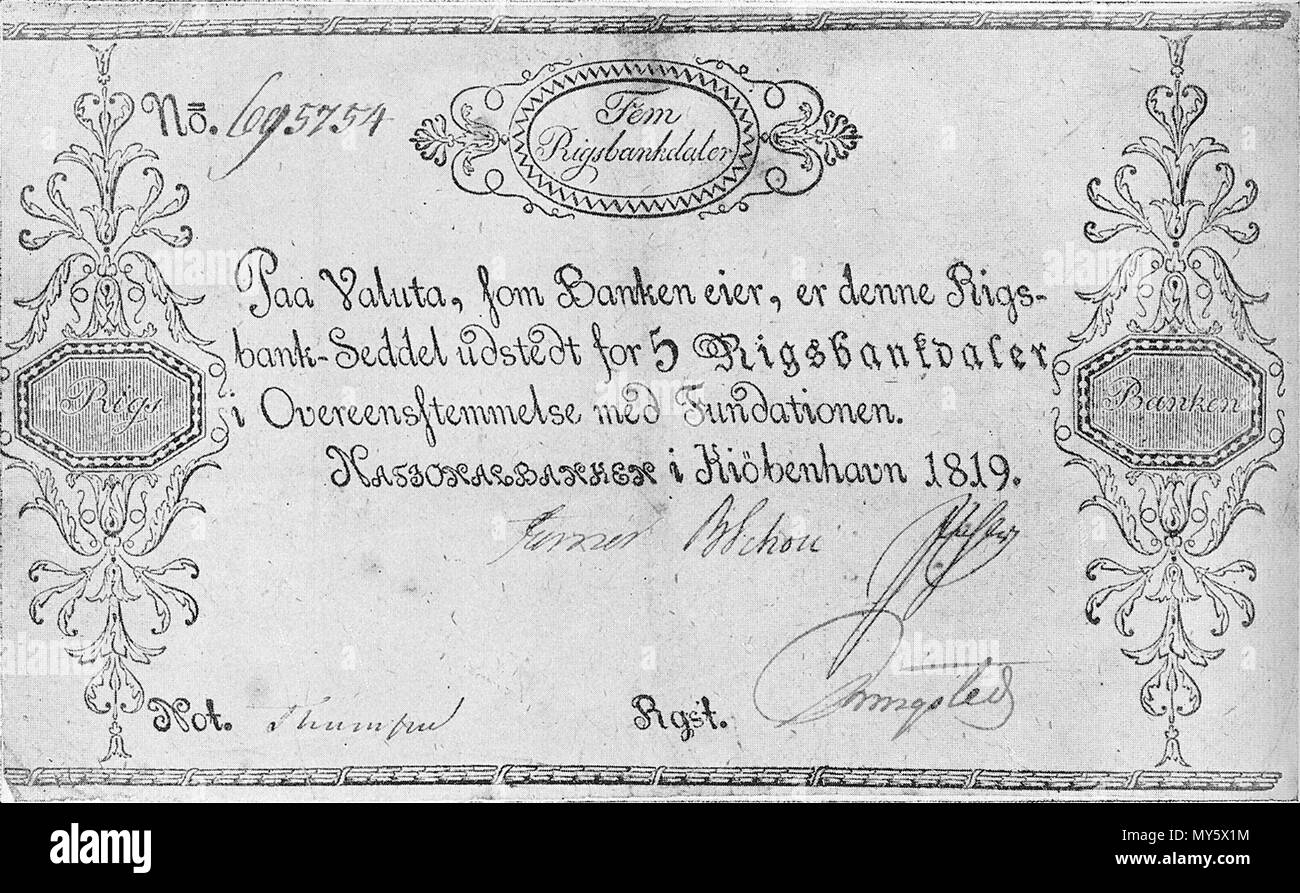 No. 695754
Fem
Rigsbankdaler
Paa Valuta, som Banken eier, er denne Rigs-
bank-Seddel udstedt for 5 Rigsbankdaler
i Overeensstemmelse med Fundationen.
NATIONALBANKEN i Kiöbenhavn 1819.
Rigs
Banken
BSchou
Not.
Rgst.
alamy
Image ID: MY5X1M
www.alamy.com